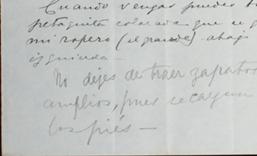 Cuando vengas puedes
petaquita colorada que
mi ropero (el grande) abajo
izquierda.
No dejes de traer zapatos
amplios, pues se cayeron
los piés —